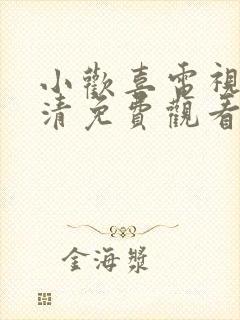 小歡喜電視
清免費觀看
金海漿